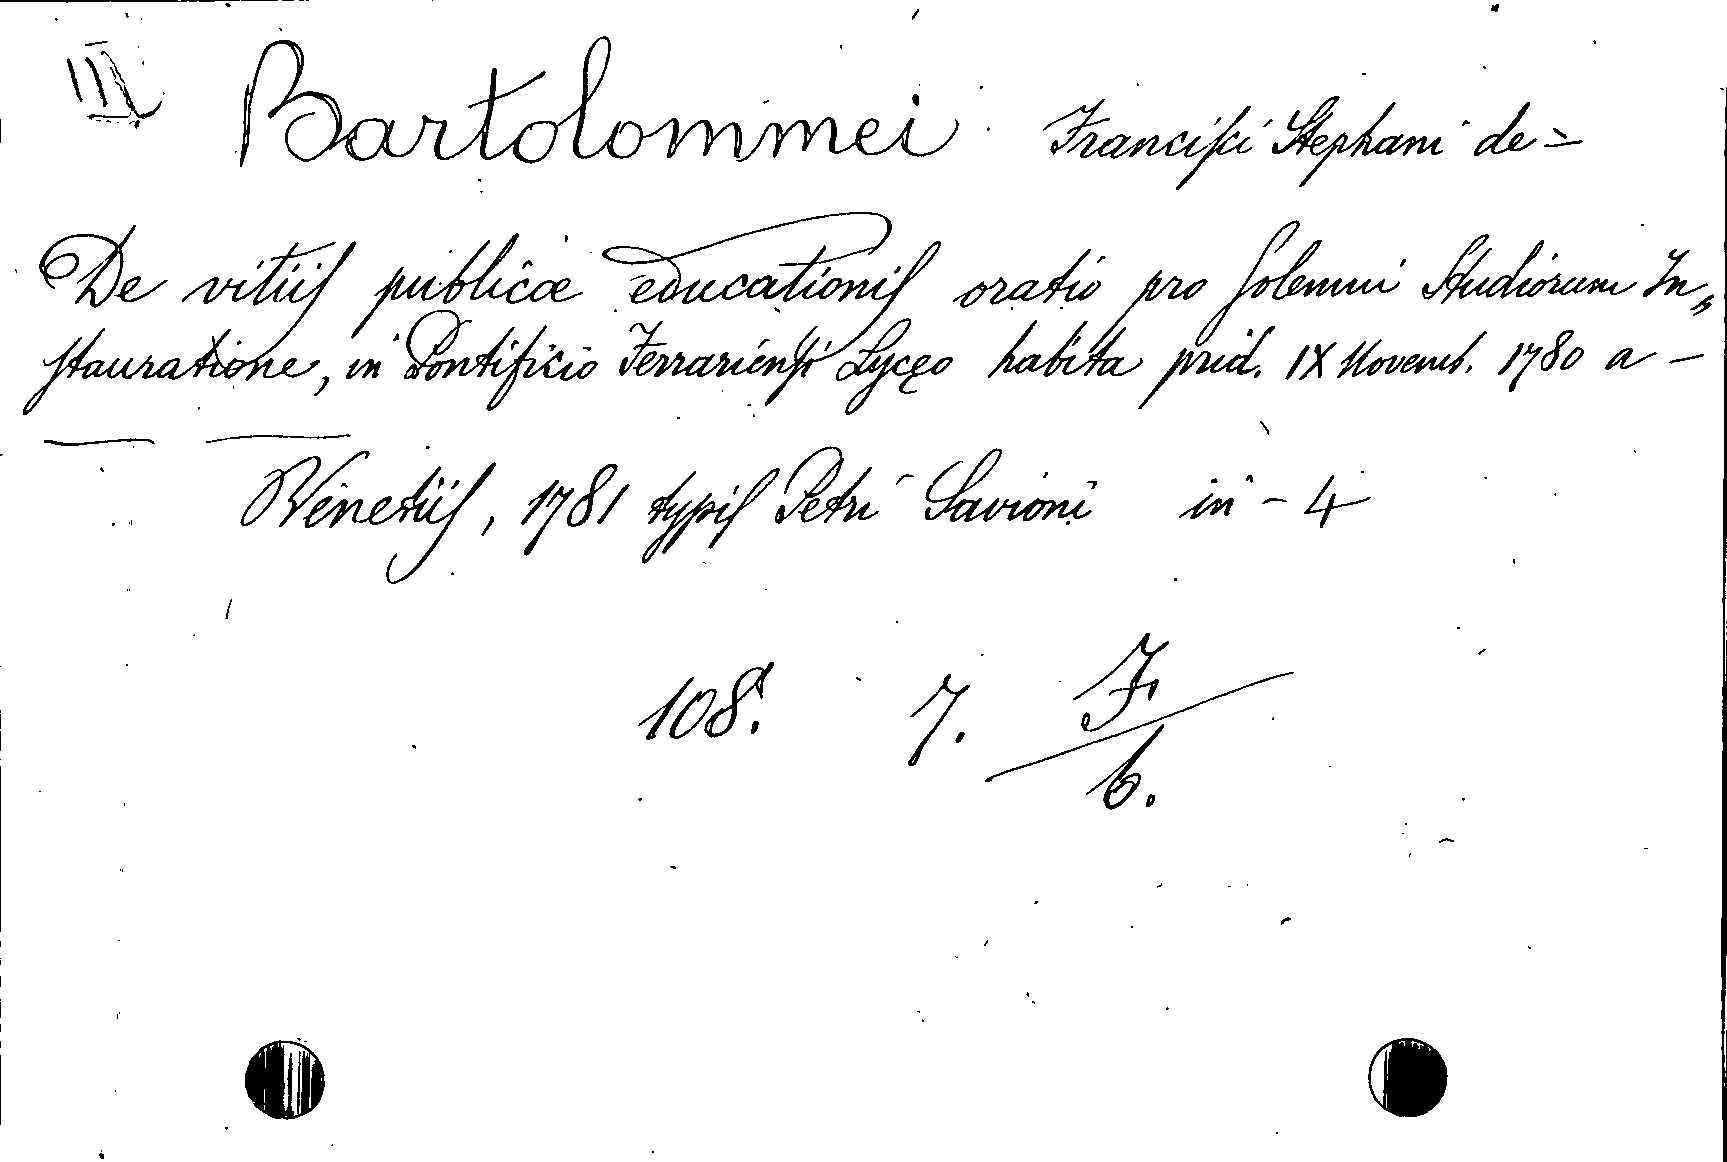 III Bartolommei Franciſci Stephani de =
De vitiiſ publicæ educationiſ oratio pro ſolemni Studiorum In„
ſtauratione, in Pontificio Ferrarienſi Lycęo habita prid. IX Novemb. 1780 a —
— —
Venetiiſ, 1781 typiſ Petri Savioni in - 4
108. 7. F
6.